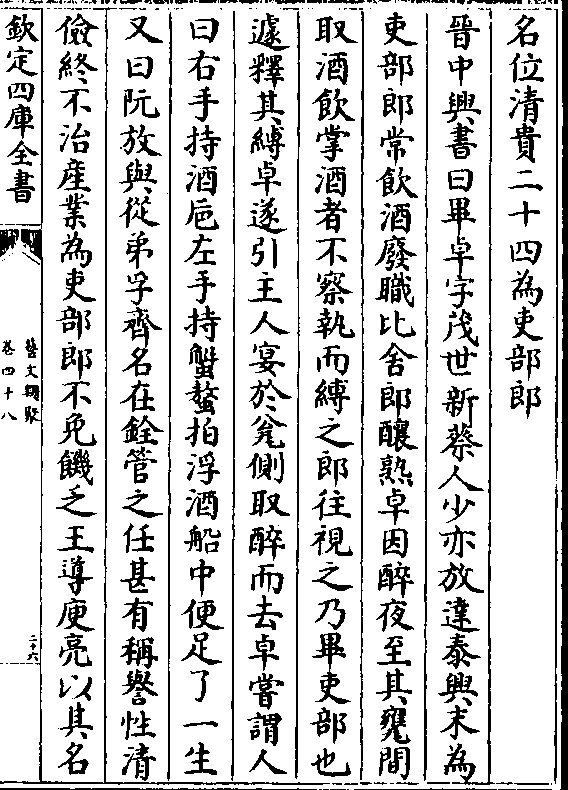 名位清貴二十四為吏部郎
晉中興書曰畢卓字茂世新蔡人少亦放達泰興末為
吏部郎常飲酒廢職比舍郎釀熟卓因醉夜至其甕間
取酒飲掌酒者不察執而縛之郎往視之乃畢吏部也
遽釋其縛卓遂引主人宴於瓮側取醉而去卓嘗謂人
曰右手持酒巵左手持蟹螯拍浮酒船中便足了一生
又曰阮放與從弟孚齊名在銓管之任甚有稱譽性清
儉終不治産業為吏部郎不免饑乏王導庾亮以其名
欽定四庫全書
藝文類聚
卷四十八
二十六